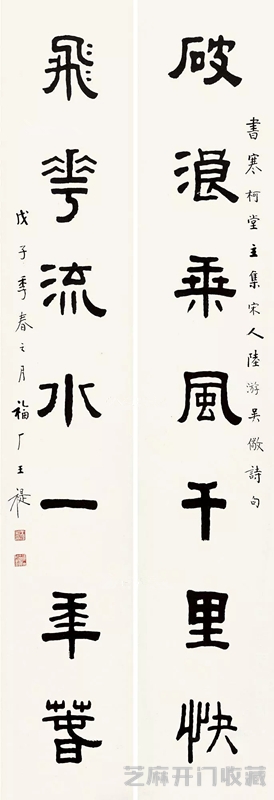 書寒柯堂主集宋人陸游吳儆詩句
破浪乘風千里快
飛華流水一年春
戊子季春之月福厂王禔
芝麻开门收藏